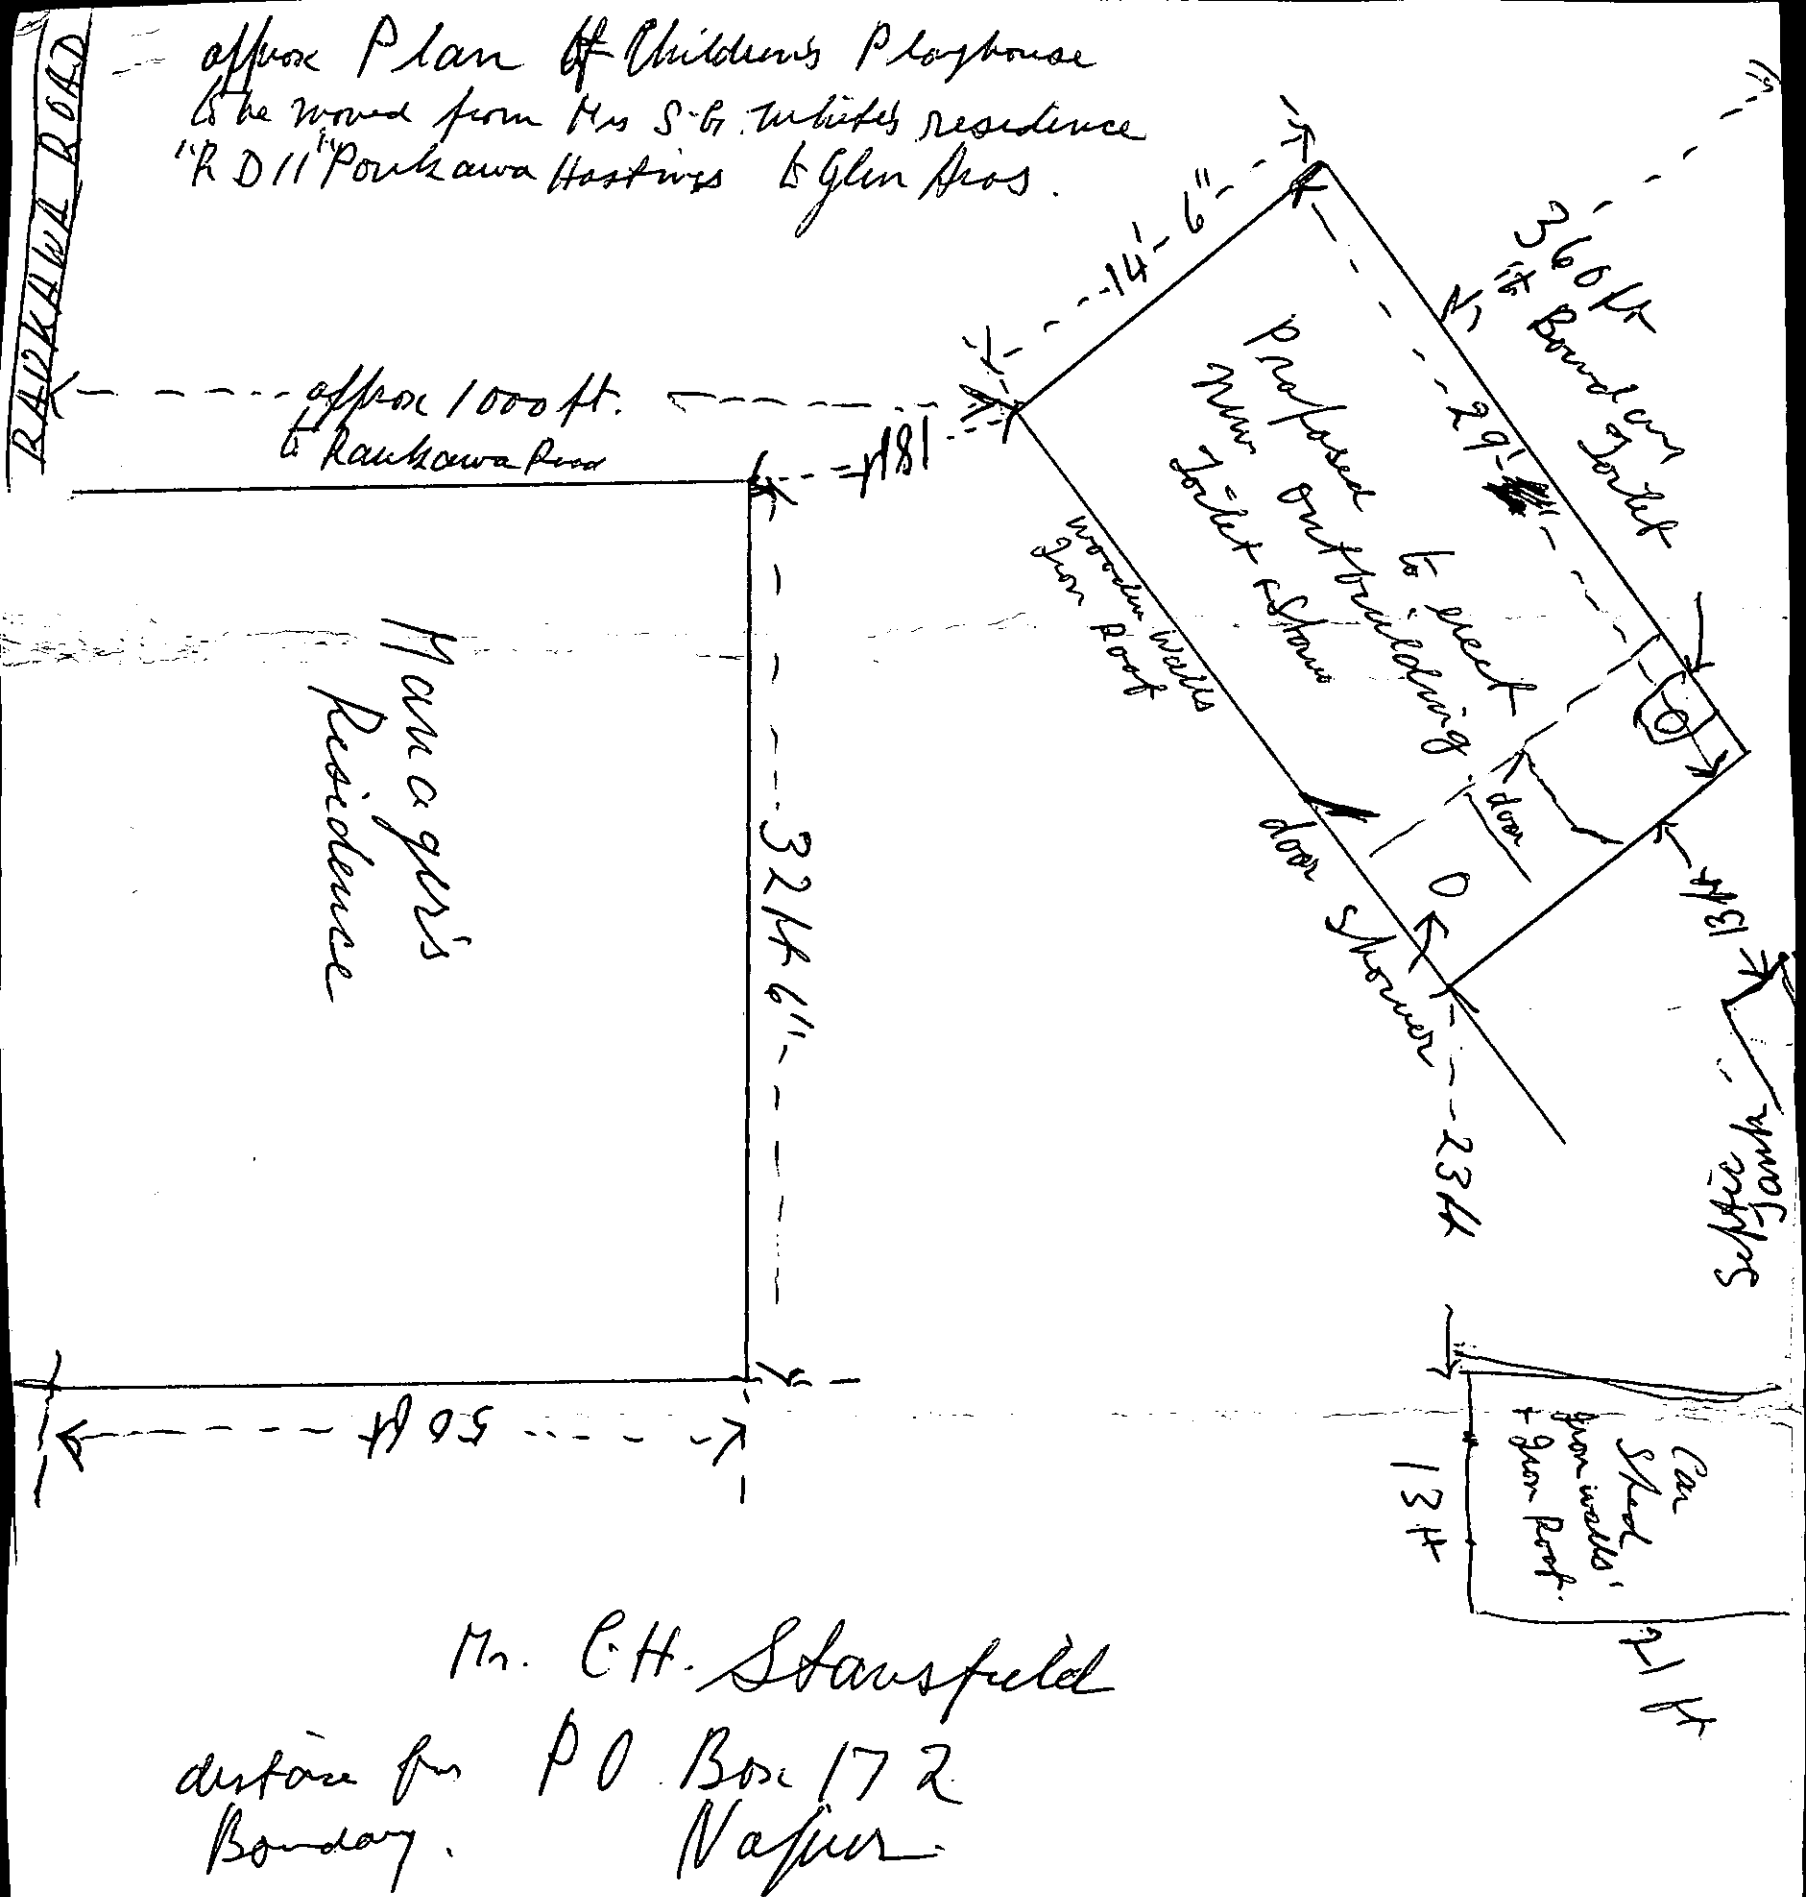 approx Plan of Children's Playhouse
to be moved from Mrs S.G. White's residence
"R D 11" Poukawa Hastings to Glen Aros.
RAUKAWA ROAD
approx 1000 ft.
to Raukawa Road
18ft
14'-6"
360 ft
to Boundary
29'
Proposed to erect
New outbuilding
Toilet & Shower
wooden walls
Iron Roof
door
door
Shower
13ft
Septic
Tank
23ft
Manager's
Residence
32ft 6"
50 ft
Car
Shed
Iron walls
+ Iron Roof.
13ft
21 ft
Mr. C.H. Stansfield
P O Box 172
Napier.
distance from
Boundary.